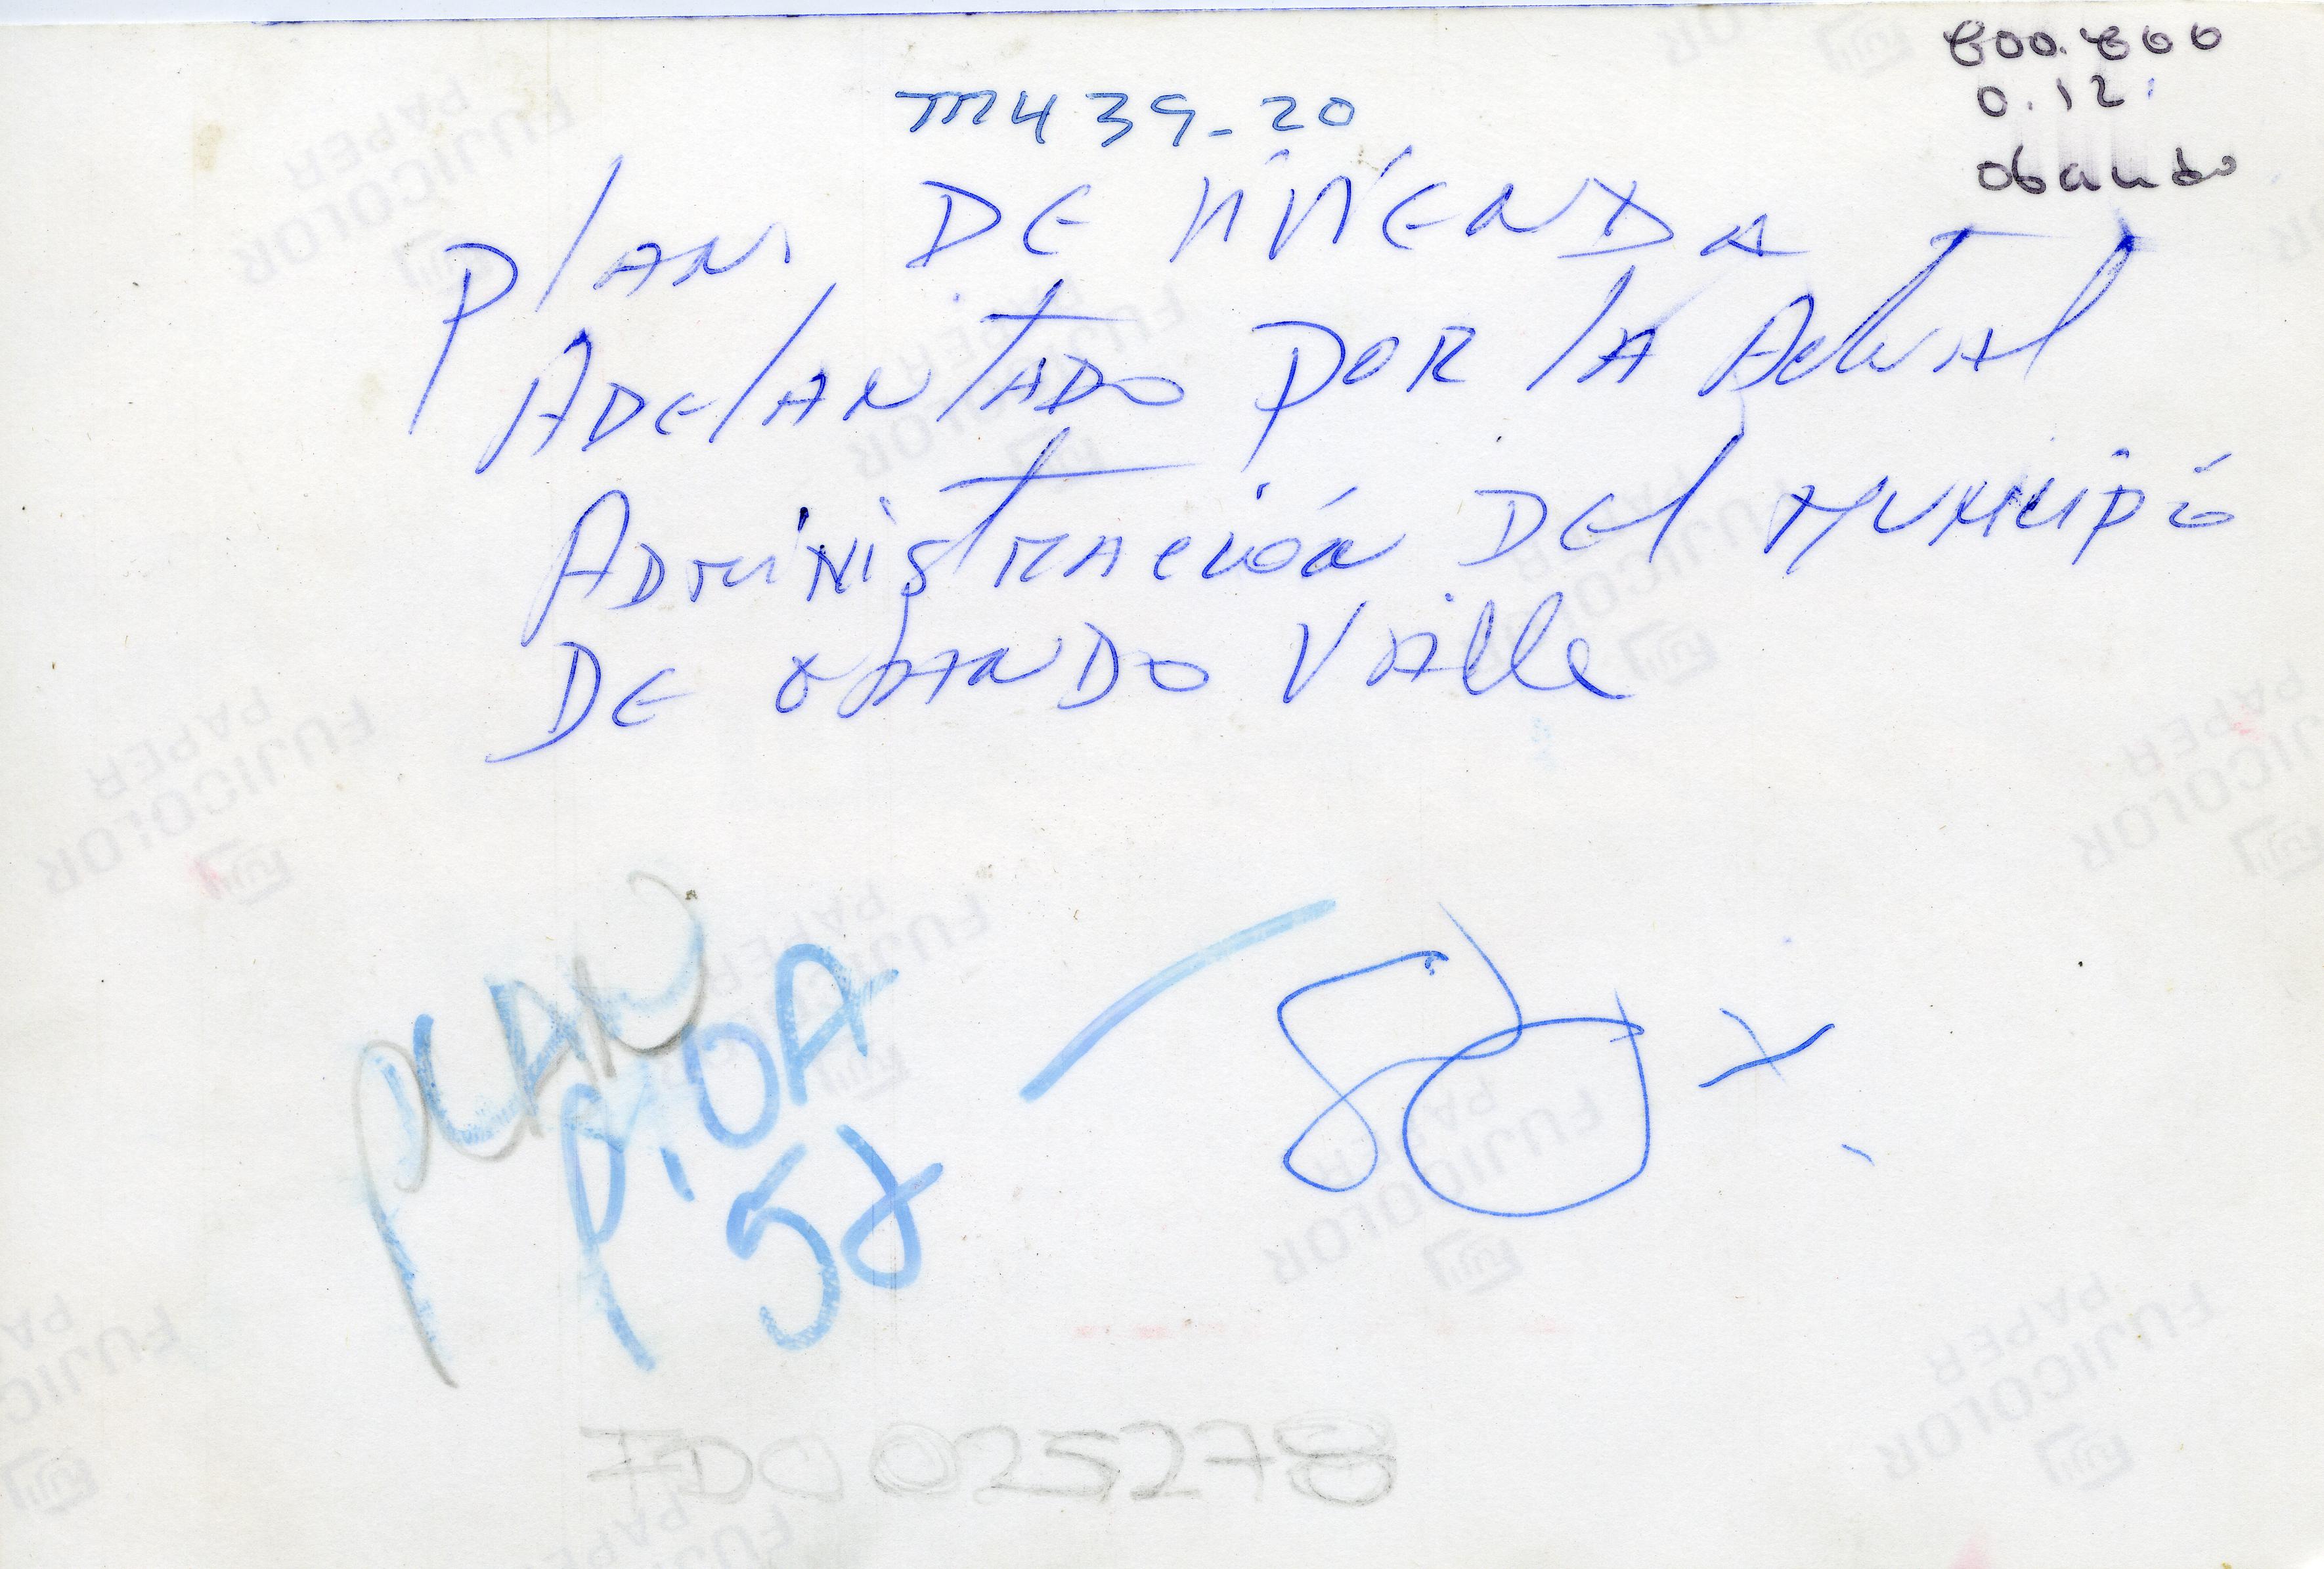 800.800
0.12
obando
M439-20
Plan DE VIVIENDA
ADELANTADO POR LA ACTUAL
ADMINISTRACIÓN DEL MUNICIPIO
DE OBANDO Valle
PLAN
FDC 025278
FUJICOLOR
PAPER